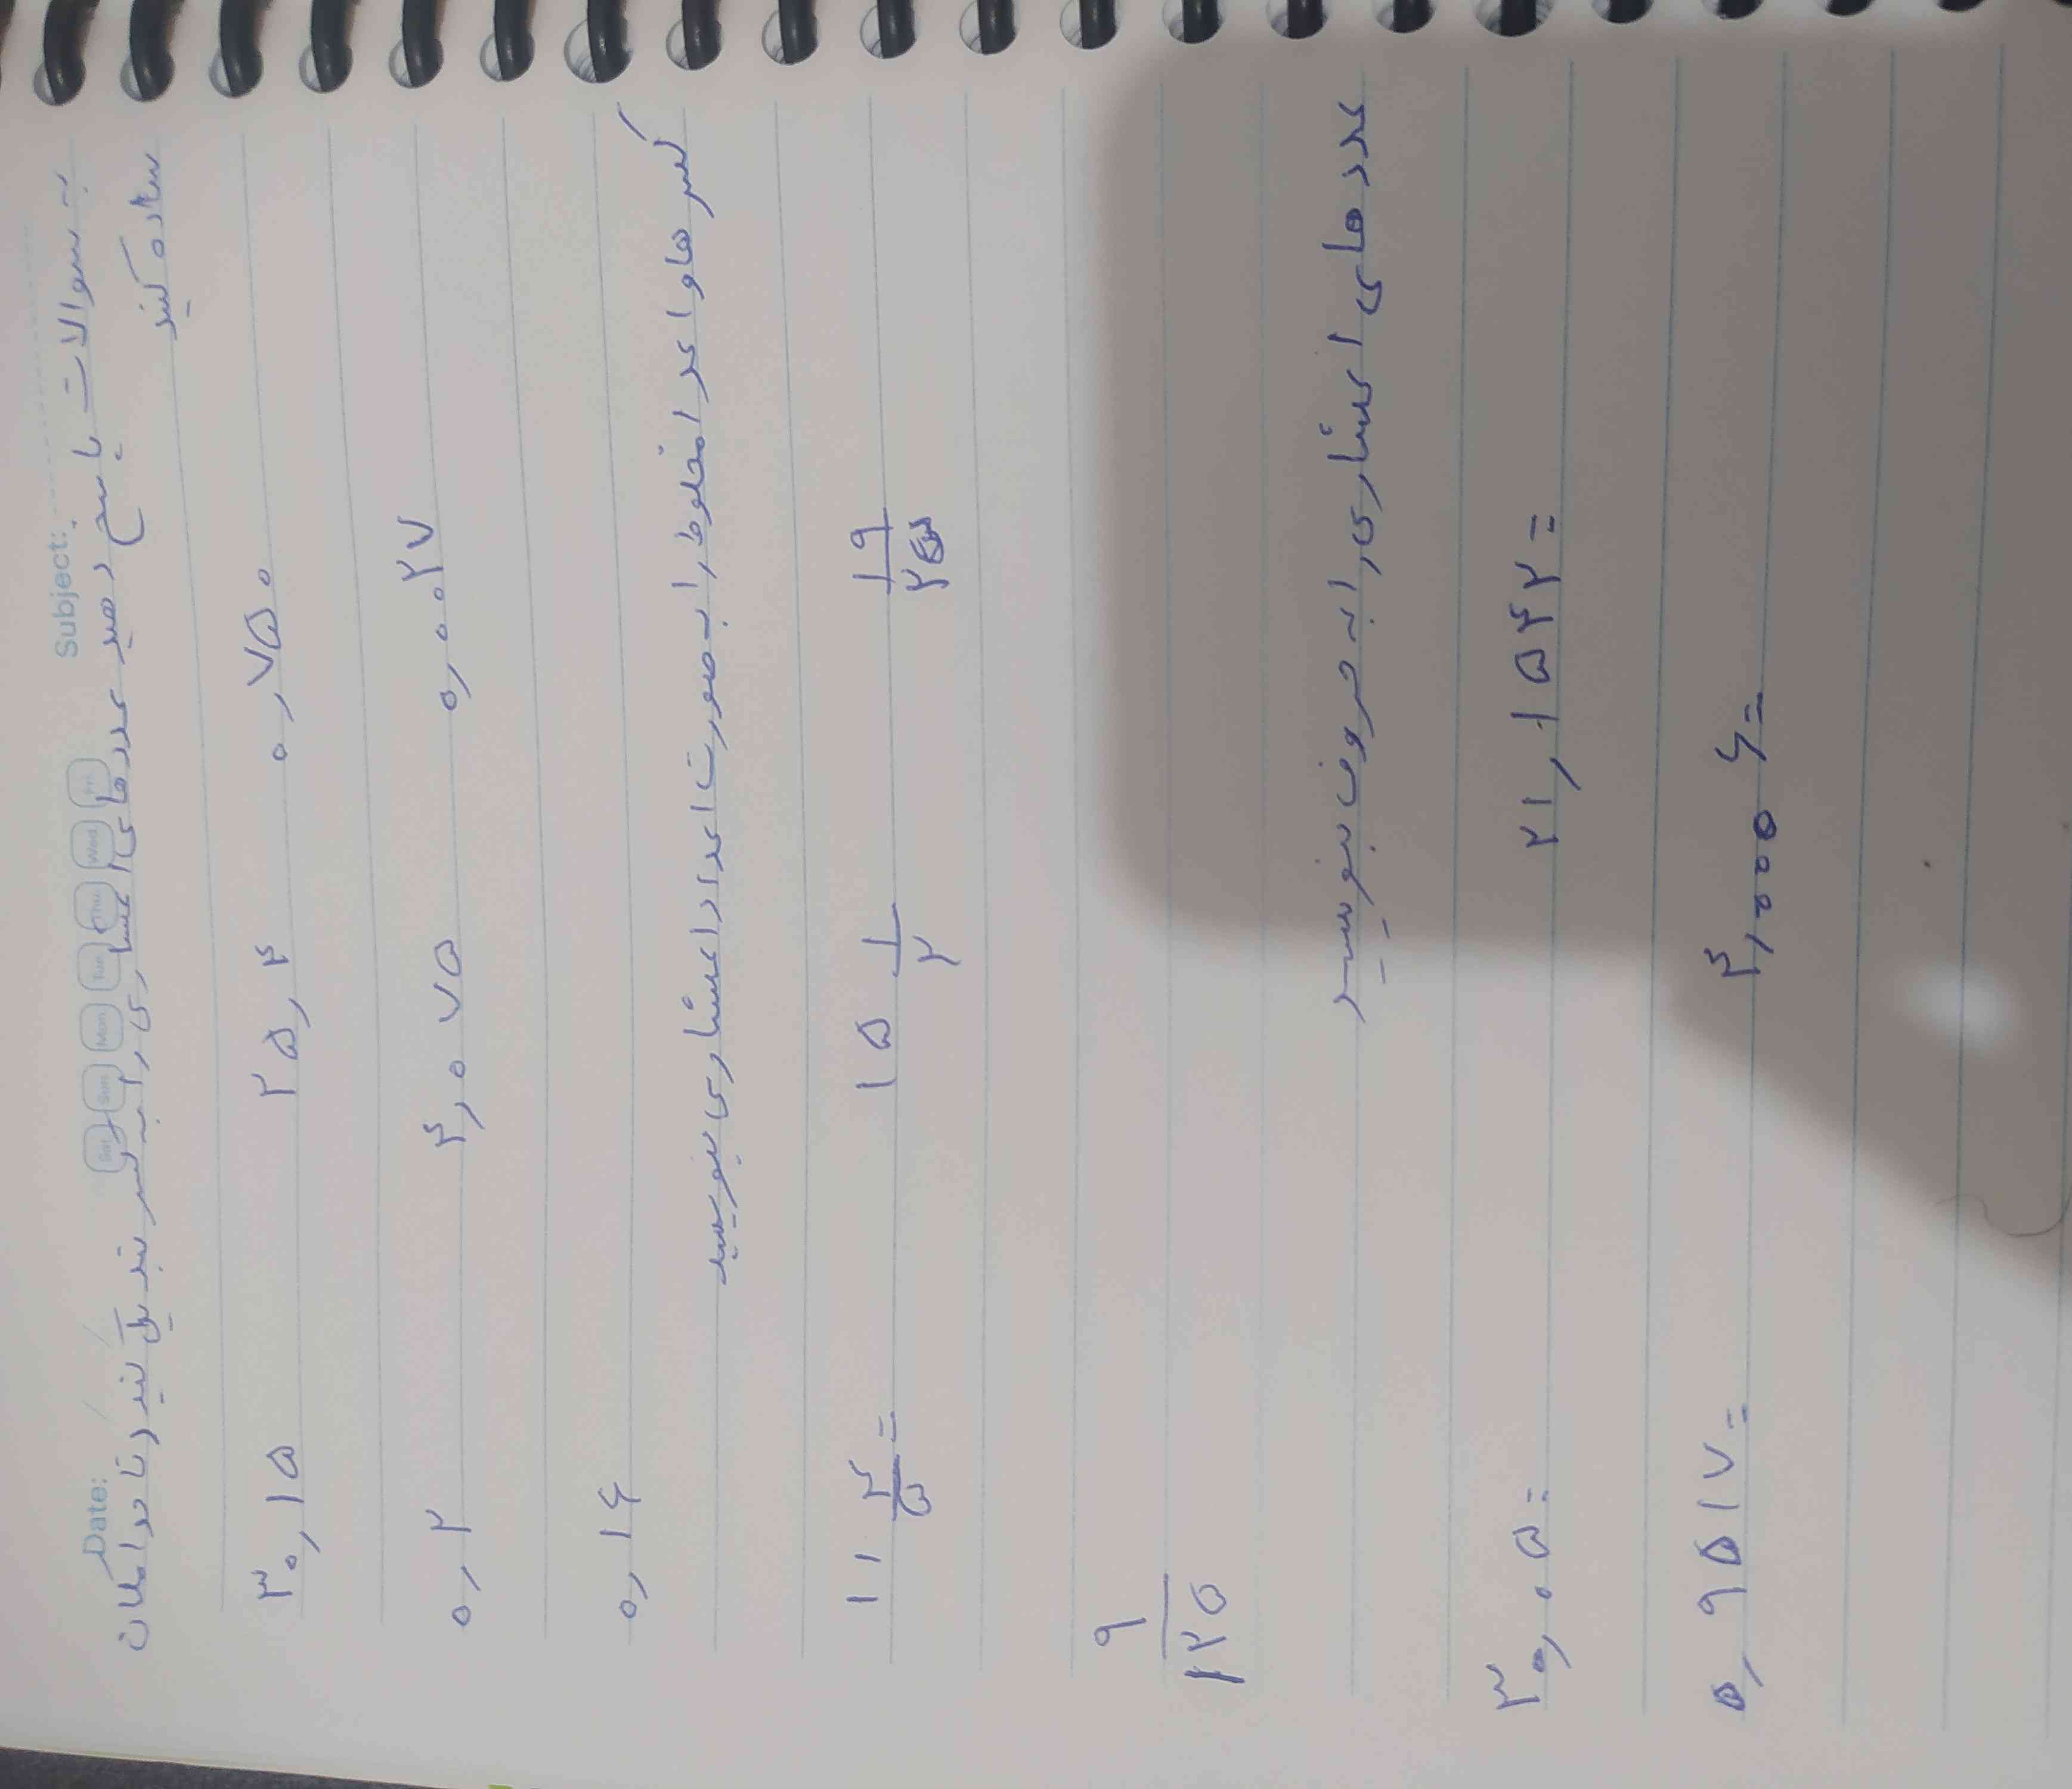 Subject:
Date:
Sat Sun Mon Tue Thu Wed Fri
به سوالات پاسخ دهید عددهای اعشاری را به کسر تبدیل کنید و تا حد امکان
ساده کنید
۳۰٫۱۵ ۲۵٫۴ ۰٫۷۵۰
۰٫۲ ۴٫۰۷۵ ۰٫۰۰۲۷
۰٫۱۶
کسر ها و اعداد مخلوط را به صورت اعداد اعشاری بنویسید
۱۱ ۲/۵ = ۱۵ ۱/۲ ۱۹/۲۵
۹/۱۲۵
عدد های اعشاری را به حروف بنویسید
۳۰٫۰۵= ۲۱٫۱۵۴۲=
۰٫۹۵۱۷= ۴٫۰۰۰۶=